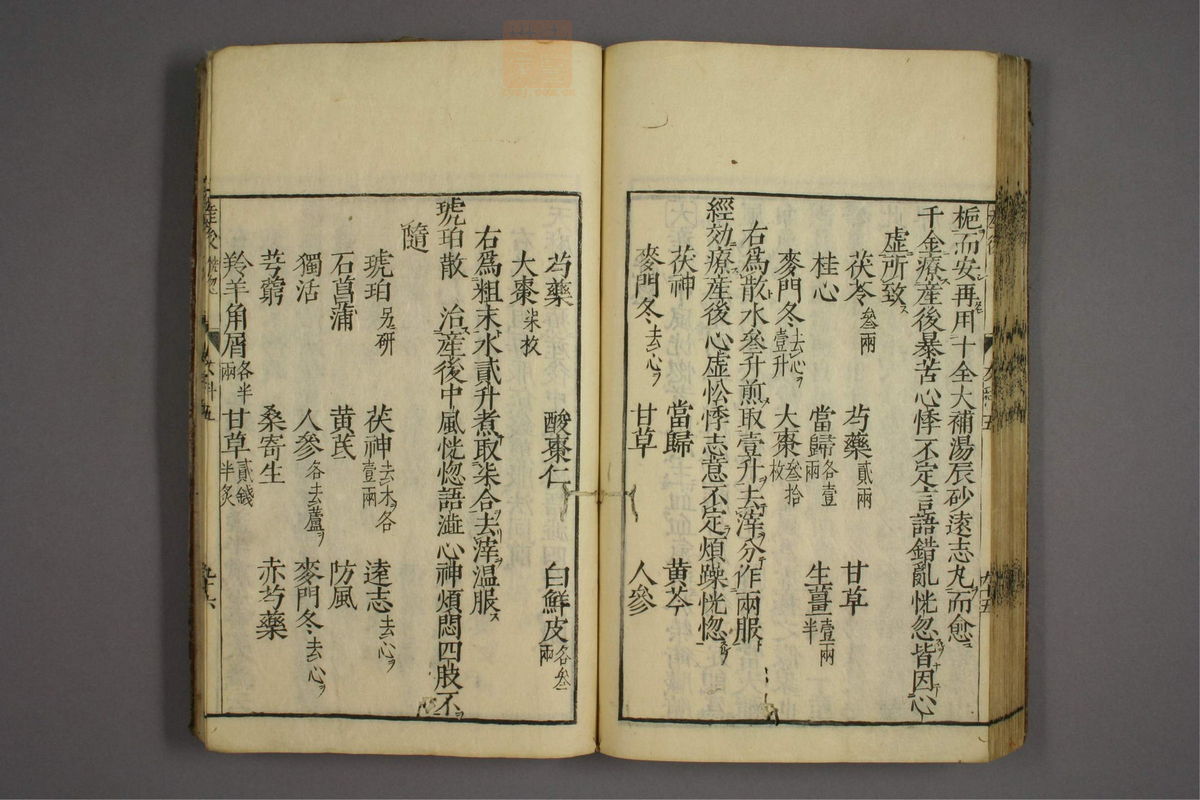 梔而安再用十全大補湯辰砂遠志丸而愈
千金療産後暴苦心悸不定言語錯亂恍忽皆因心
虚所致
茯苓叄兩 芍藥貳兩 甘草
桂心 當歸各壹兩 生薑壹兩半
麥門冬去心壹升 大棗叄拾枚
右爲散水叄升煎取壹升去滓分作兩服
經効療産後心虚忪悸志意不定煩躁恍惚
茯神 當歸 黄芩
麥門冬去心 甘草 人參
芍藥 酸棗仁 白鮮皮各叄兩
大棗柒枚
右爲粗末水貳升煮取柒合去滓温服
琥珀散 治産後中風恍惚語澁心神煩悶四肢不
隨
琥珀另研 茯神去木各壹兩 遠志去心
石菖蒲 黄芪 防風
獨活 人參各去蘆 麥門冬去心
芎藭 桑寄生 赤芍藥
羚羊角屑各半兩 甘草貳錢半炙